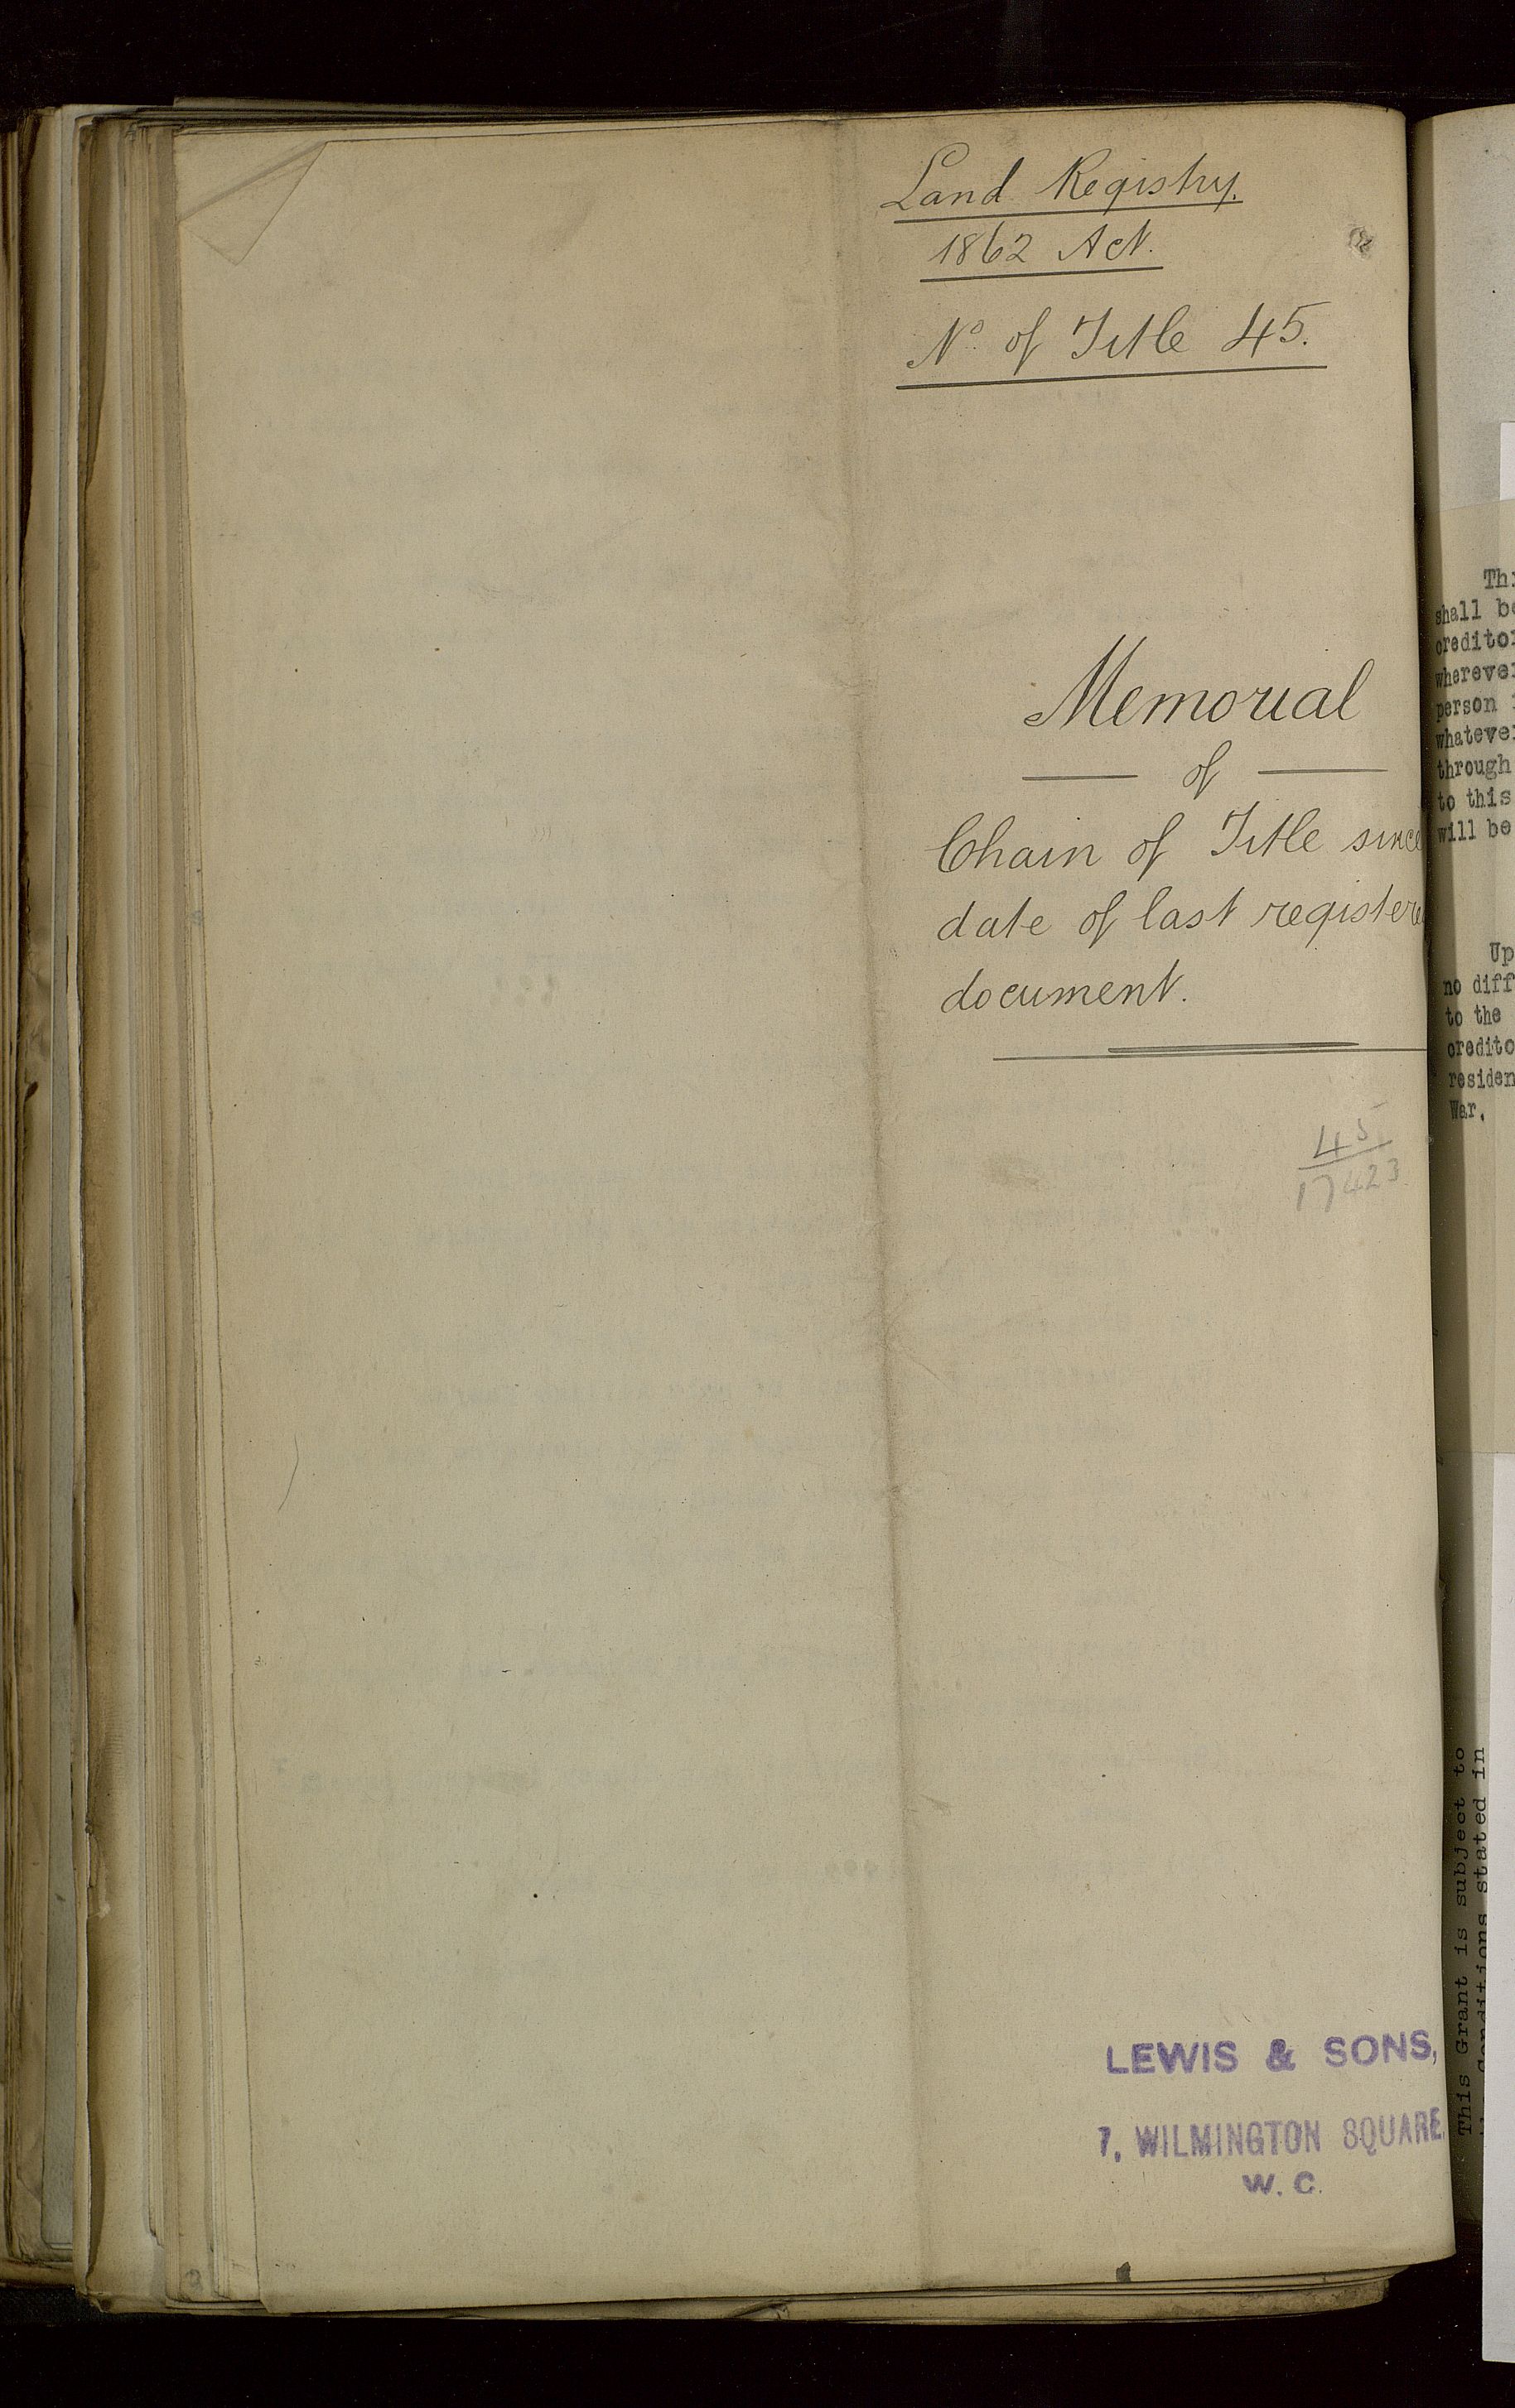 Land Registry.
1862 Act.
No. of Title 45.
Memorial
of
Chain of Title since
date of last registere
document.
45
17423
LEWIS & SONS,
7, WILMINGTON SQUARE,
W. C.
shall be
creditor
wherever
person
whatever
through
to this
will be
Up
no diff
to the
credito
residen
War.
This Grant is subject to
Conditions stated in